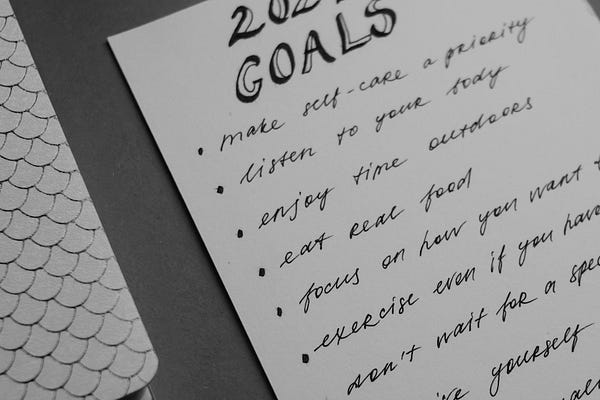 GOALS
make self-care a priority
listen to your body
enjoy time outdoors
eat real food
focus on how you want
exercise even if you have
don't wait for a
yourself